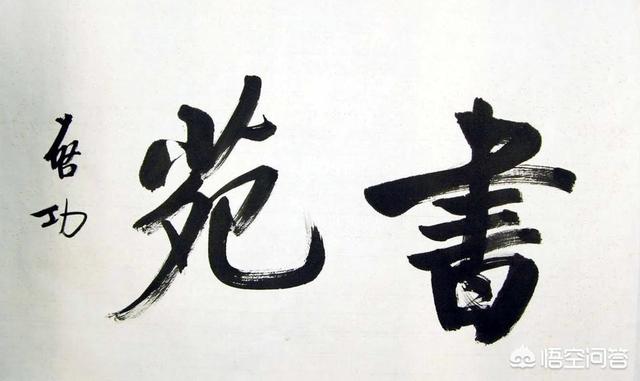 書苑
启功
悟空问答